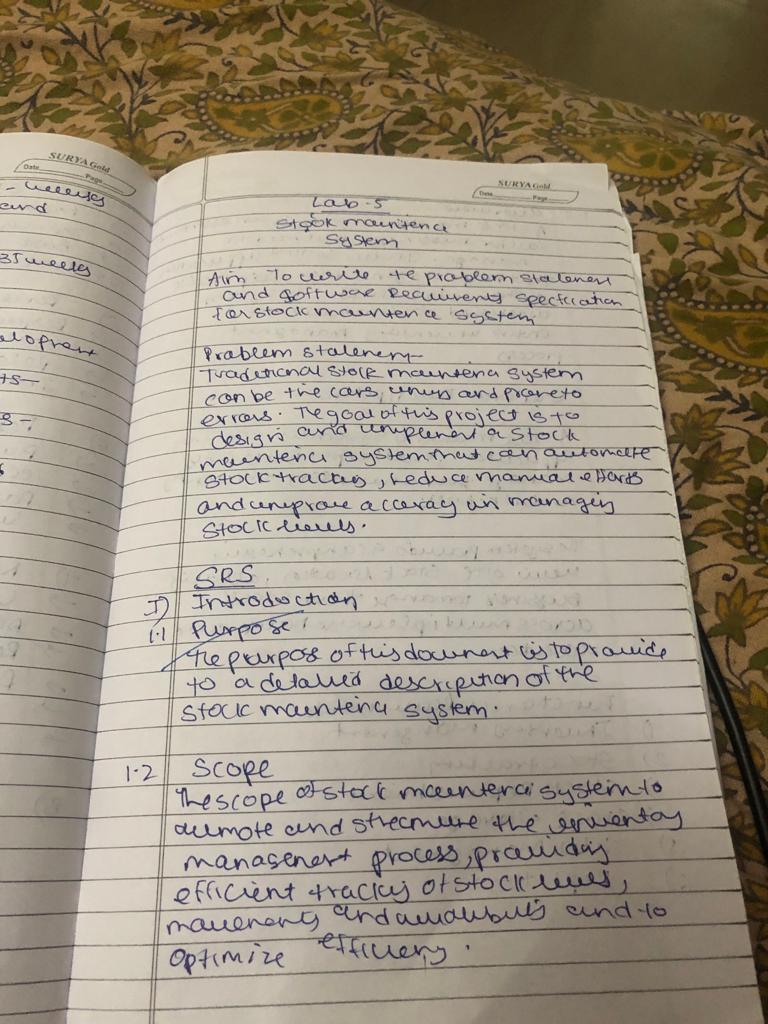 SURYA Gold
Date Page
- weeks
and
35 weeks
SURYA Gold
Date Page
Lab-5
Stock maintence
System
Aim: To write te problem statement
and software Requirements specification
for stock maintence system
Problem statement
Traditional stock maintence system
can be and prone to
errors. The goal of this project is to
design and implement a stock
maintence system that can automate
stock tracking, reduce manual efforts
and improve accuracy in managing
stock levels.
SRS
I) Introduction
1.1 Purpose
The purpose of this document is to provide
to a detailed description of the
stock maintence system.
1.2 Scope
The scope of stock maintence system to
and the inventory
management process, providing
efficient tracking of stock levels,
movements and and to
optimize efficiency.